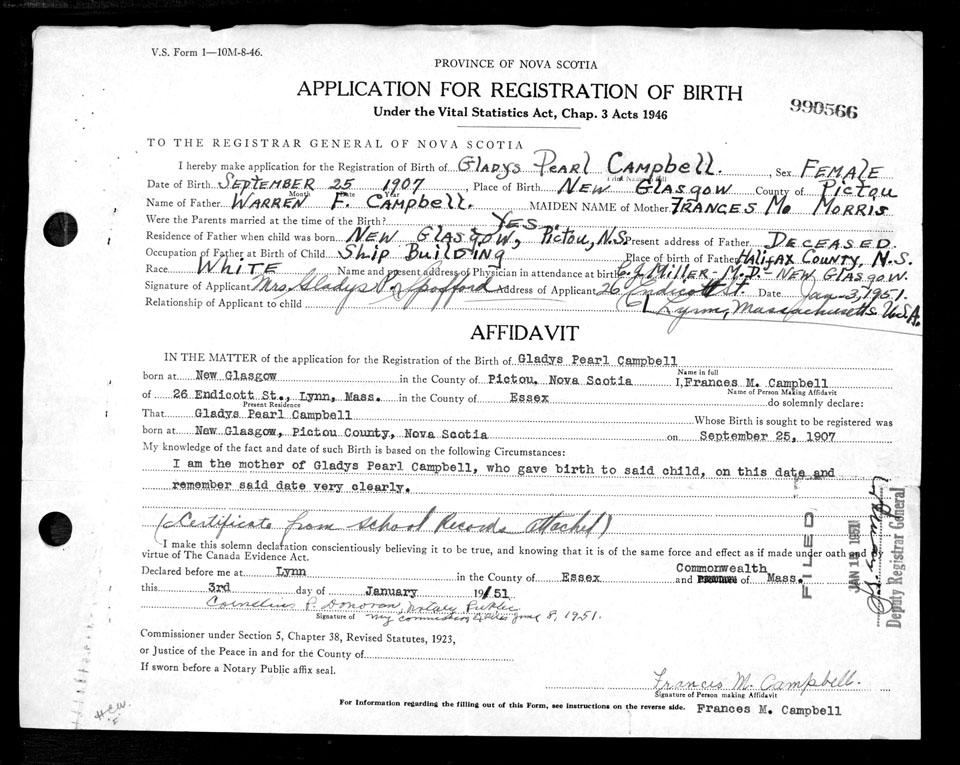 V.S. Form 1—10M-8-46.
PROVINCE OF NOVA SCOTIA
APPLICATION FOR REGISTRATION OF BIRTH
990566
Under the Vital Statistics Act, Chap. 3 Acts 1946
TO THE REGISTRAR GENERAL OF NOVA SCOTIA
I hereby make application for the Registration of Birth of Gladys Pearl Campbell. , Sex Female
Date of Birth September 25 1907 , Place of Birth New Glasgow County of Pictou
Month Date Year
Name of Father Warren F. Campbell. MAIDEN NAME of Mother Frances M. Morris
Were the Parents married at the time of the Birth? Yes
Residence of Father when child was born New Glasgow, Pictou, N.S. Present address of Father Deceased.
Occupation of Father at Birth of Child Ship Building Place of birth of Father Halifax County, N.S.
Race White Name and present address of Physician in attendance at birth E. J. Miller. M.D. New Glasgow.
Signature of Applicant Mrs. Gladys P. Spofford Address of Applicant 26 Endicott St. Date Jan. 3, 1951.
Relationship of Applicant to child Lynn, Massachusetts U.S.A.
AFFIDAVIT
IN THE MATTER of the application for the Registration of the Birth of Gladys Pearl Campbell
Name in full
born at New Glasgow in the County of Pictou, Nova Scotia I, Frances M. Campbell
Name of Person Making Affidavit
of 26 Endicott St., Lynn, Mass. in the County of Essex do solemnly declare:
Present Residence
That Gladys Pearl Campbell Whose Birth is sought to be registered was
born at New Glasgow, Pictou County, Nova Scotia on September 25, 1907
My knowledge of the fact and date of such Birth is based on the following Circumstances:
I am the mother of Gladys Pearl Campbell, who gave birth to said child, on this date and
remember said date very clearly.
(Certificate from School Records attached)
I make this solemn declaration conscientiously believing it to be true, and knowing that it is of the same force and effect as if made under oath and by
virtue of The Canada Evidence Act.
Commonwealth
Declared before me at Lynn in the County of Essex and of Mass.
this 3rd day of January 1951
Cornelius P. Donovan, Notary Public
Signature of My commission expires June 8, 1951.
FILED
JAN 1951
Deputy Registrar General
Commissioner under Section 5, Chapter 38, Revised Statutes, 1923,
or Justice of the Peace in and for the County of
If sworn before a Notary Public affix seal.
Frances M. Campbell.
Signature of Person making Affidavit
For Information regarding the filling out of this Form, see instructions on the reverse side. Frances M. Campbell